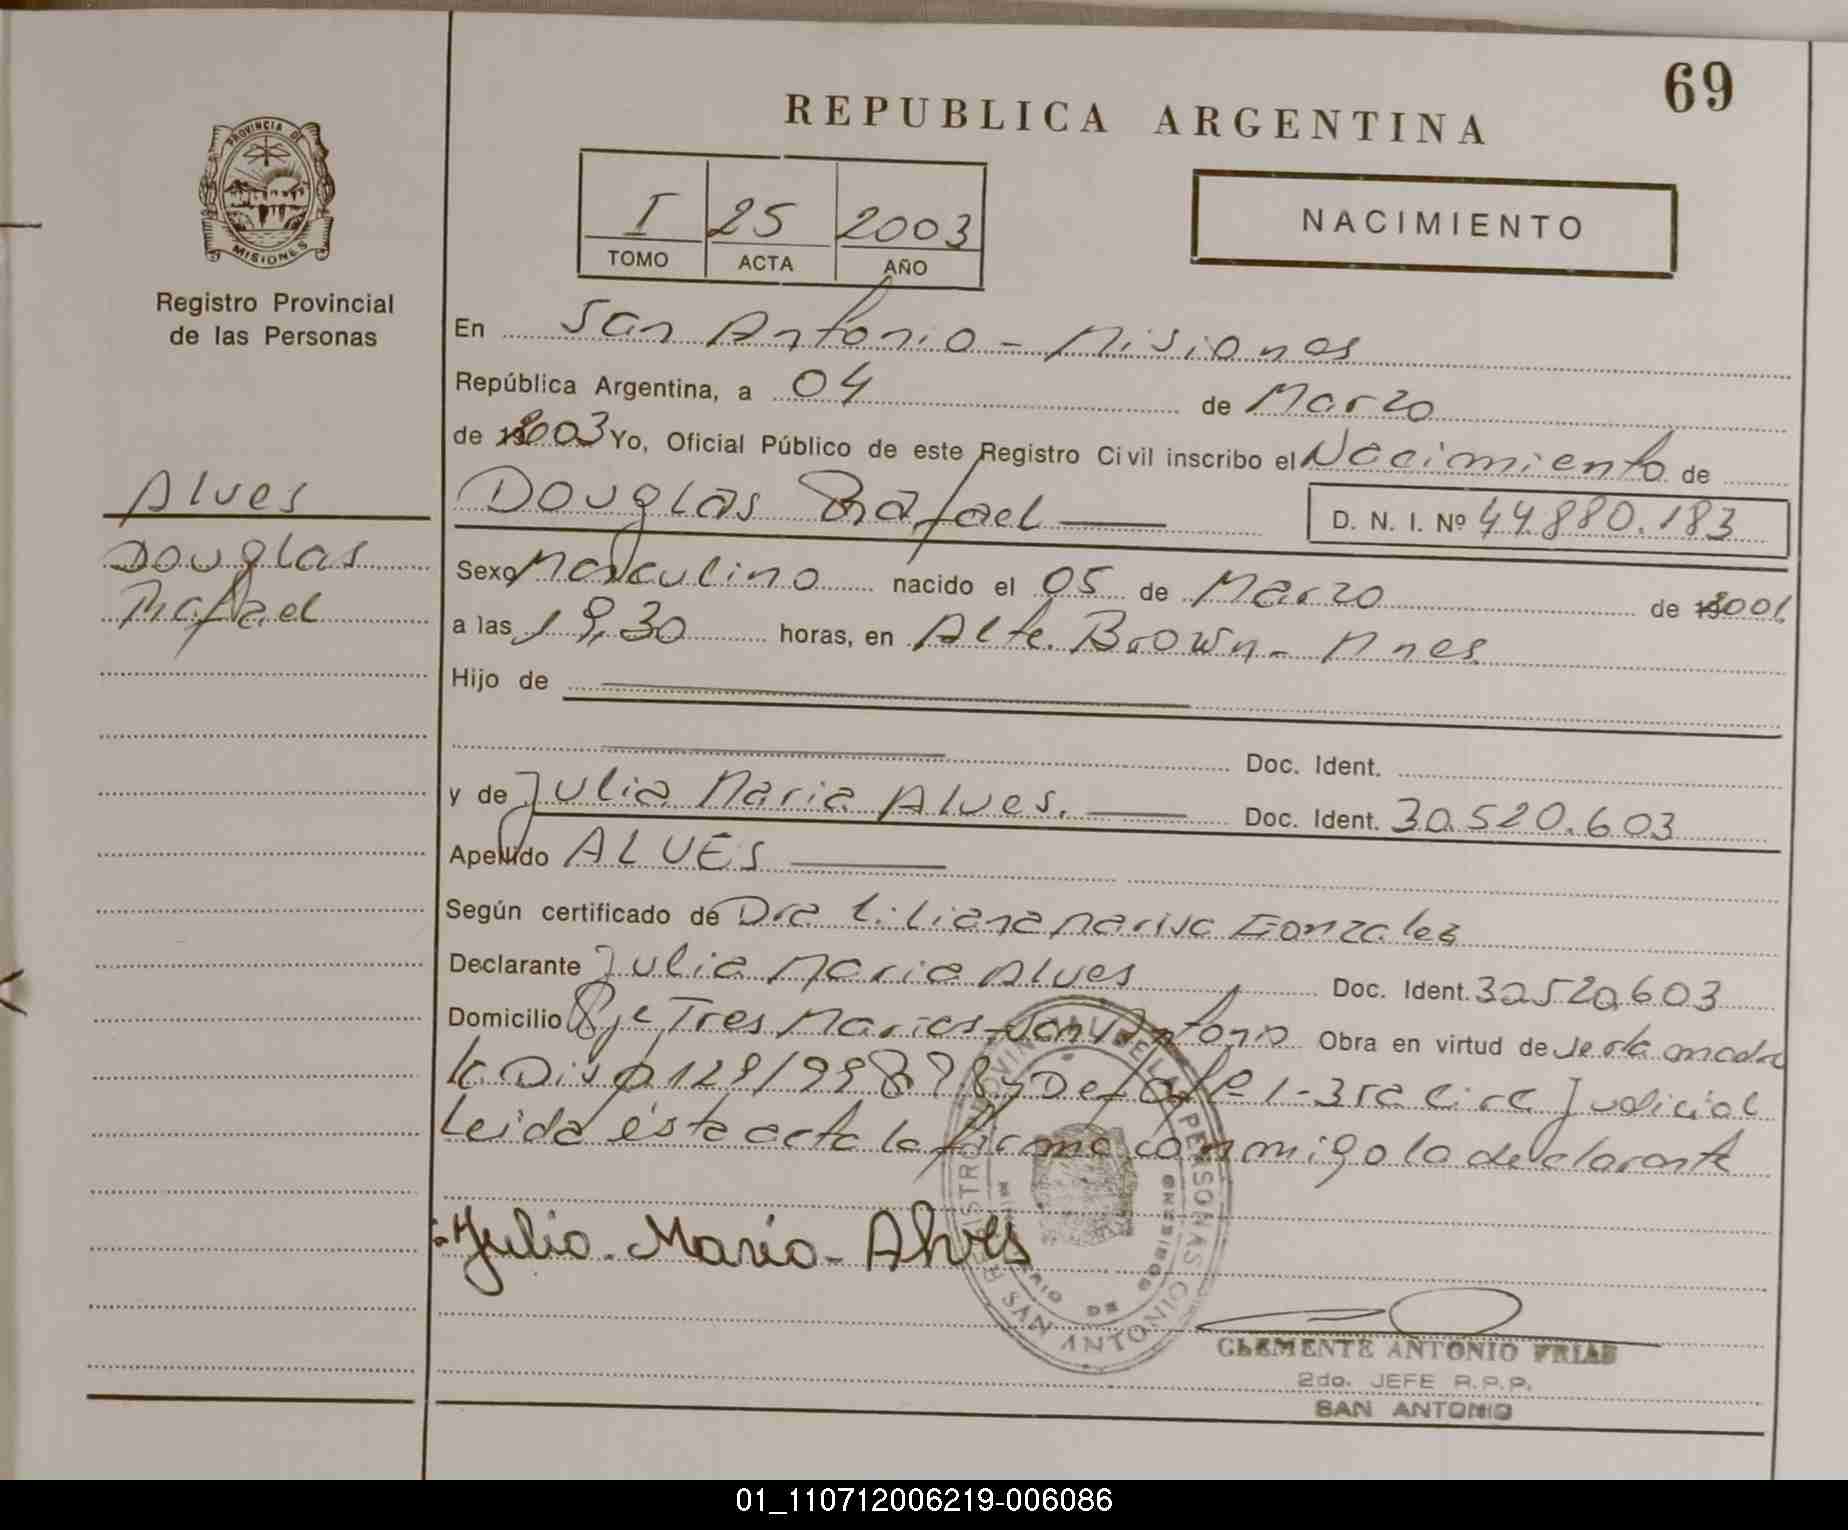 69
REPUBLICA ARGENTINA
PROVINCIA DE
MISIONES
Registro Provincial
de las Personas
I 25 2003
TOMO ACTA AÑO
NACIMIENTO
En San Antonio - Misiones
República Argentina, a 04 de Marzo
de 2003 Yo, Oficial Público de este Registro Civil inscribo el Nacimiento de
Douglas Rafael D. N. I. Nº 44.880.183
Alves
Douglas
Rafael
Sexo Masculino nacido el 05 de Marzo de 2001
a las 19,30 horas, en Alte. Brown - Mnes.
Hijo de
Doc. Ident.
y de Julia Maria Alves. Doc. Ident. 30.520.603
Apellido ALVES
Según certificado de Dra Liliana Marisa Gonzalez
Declarante Julia Maria Alves Doc. Ident. 30520603
Domicilio Pje Tres Marias - San Antonio Obra en virtud de ser la madre
Disp 129/99 y Def Of 1 - 3ra circ Judicial
Leida ésta acta la firma conmigo la declarante
Julia - Maria - Alves
REGISTRO PROVINCIAL DE LAS PERSONAS
MINISTERIO DE GOBIERNO
SAN ANTONIO
CLEMENTE ANTONIO FRIAS
2do. JEFE R.P.P.
SAN ANTONIO
01_110712006219-006086